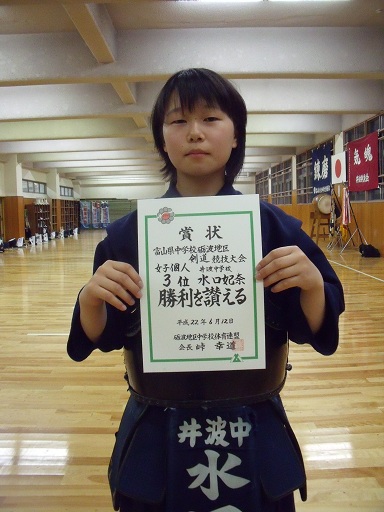 賞状
富山県中学校砺波地区
剣道競技大会
女子個人 井波中学校
3位 水口妃奈
勝利を讃える
平成22年6月12日
砺波地区中学校体育連盟
会長 峅 幸道
井波中
水
錬磨
氣魂